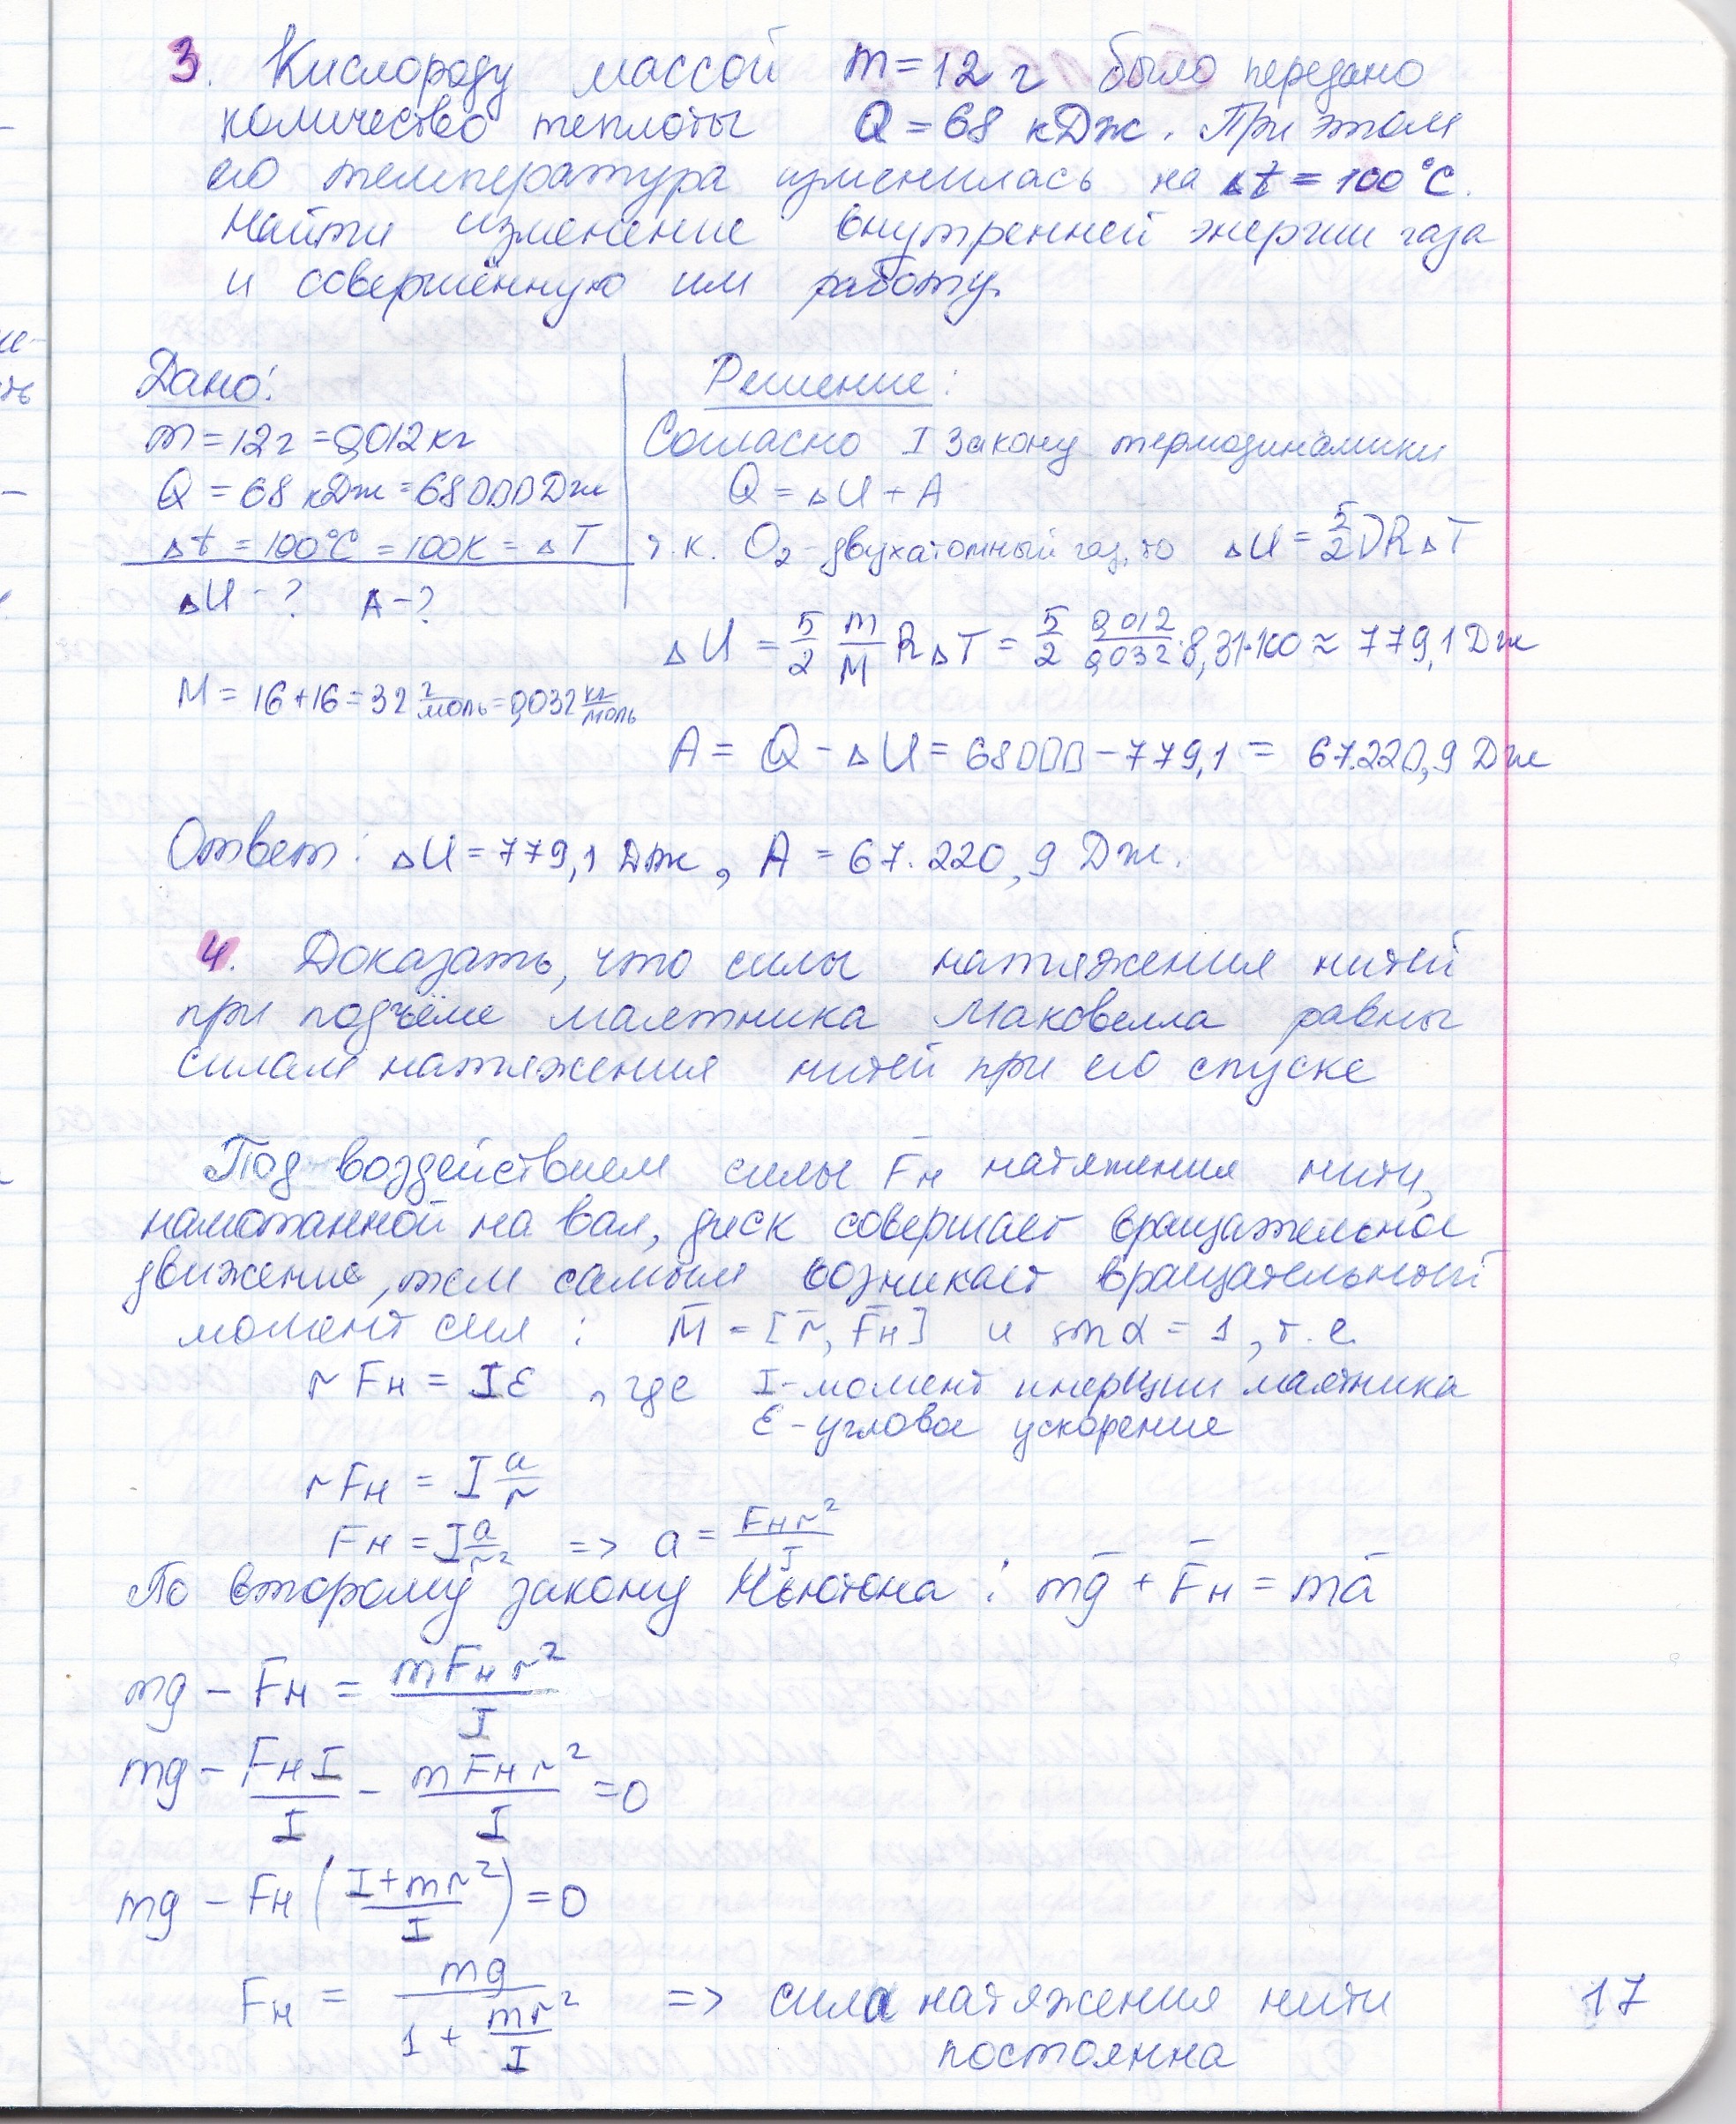 3. Кислороду массой m = 12 г было передано
количество теплоты Q = 68 кДж. При этом
его температура изменилась на Δt = 100°C.
Найти изменение внутренней энергии газа
и совершённую им работу.
Дано:
m = 12 г = 0,012 кг
Q = 68 кДж = 68000 Дж
Δt = 100°C = 100К = ΔT
ΔU - ? A - ?
M = 16 + 16 = 32 г/моль = 0,032 кг/моль
Решение:
Согласно I закону термодинамики
Q = ΔU + A
т.к. O₂ - двухатомный газ, то ΔU = 5/2 νRΔT
ΔU = 5/2 m/M RΔT = 5/2 0,012/0,032 · 8,31·100 ≈ 779,1 Дж
A = Q - ΔU = 68000 - 779,1 = 67.220,9 Дж
Ответ: ΔU = 779,1 Дж, A = 67.220,9 Дж.
4. Доказать, что силы натяжения нитей
при подъёме маятника Максвелла равны
силам натяжения нитей при его спуске
Под воздействием силы F̄н натяжения нити,
намотанной на вал, диск совершает вращательное
движение, тем самым возникает вращательный
момент сил: M̄ = [r̄, F̄н] и sin α = 1, т.е.
r Fн = Iε, где I - момент инерции маятника
ε - угловое ускорение
r Fн = I a/r
Fн = I a/r² => a = Fн r²/I
По второму закону Ньютона: mḡ + F̄н = mā
mg - Fн = mFн r²/I
mg - FнI/I - mFн r²/I = 0
mg - Fн (I + mr²/I) = 0
Fн = mg/1 + mr²/I => сила натяжения нити
постоянна
17